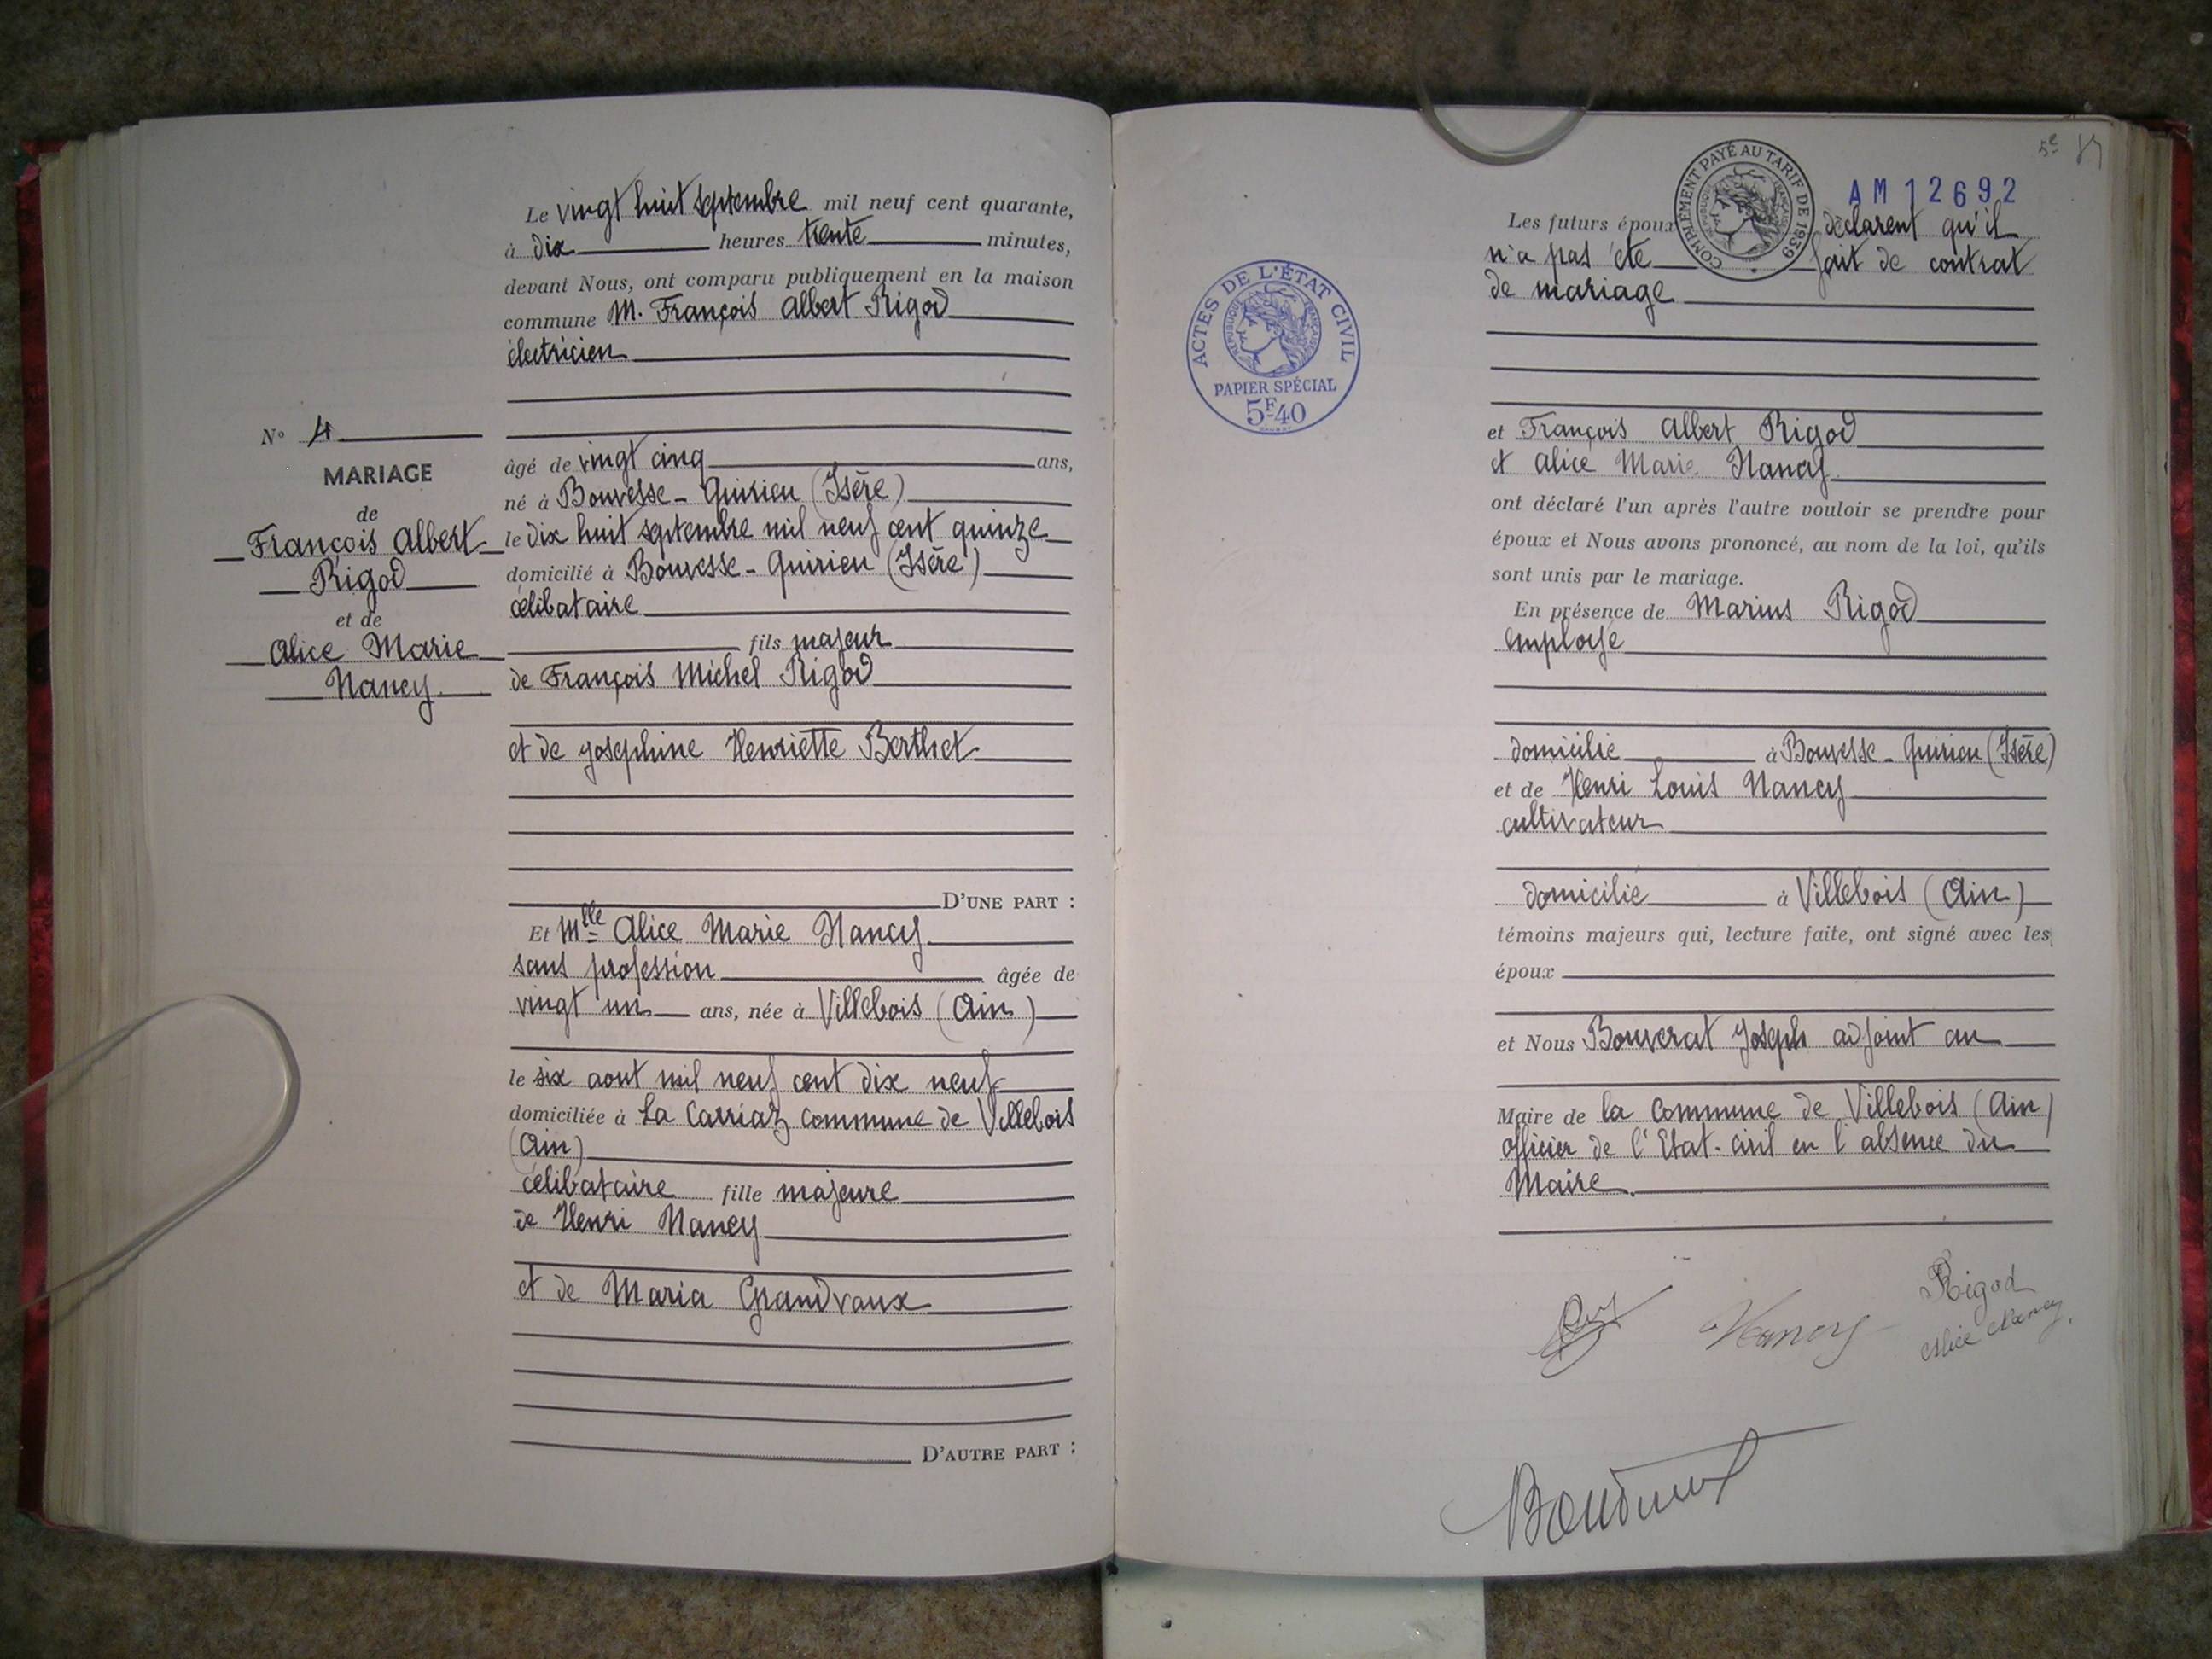 N° 4
MARIAGE
de
François Albert
Rigod
et de
Alice Marie
Nancy
Le vingt huit septembre mil neuf cent quarante,
à dix heures trente minutes,
devant Nous, ont comparu publiquement en la maison
commune M. François Albert Rigod
électricien
âgé de vingt cinq ans,
né à Bouvesse - Quirieu (Isère)
le dix huit septembre mil neuf cent quinze
domicilié à Bouvesse - Quirieu (Isère)
célibataire
fils majeur
de François Michel Rigod
et de Josephine Henriette Berthet
D'UNE PART :
Et Mlle Alice Marie Nancy
sans profession âgée de
vingt un ans, née à Villebois (Ain)
le six aout mil neuf cent dix neuf
domiciliée à La Carriaz commune de Villebois
(Ain)
célibataire fille majeure
de Henri Nancy
et de Maria Grandvaux
D'AUTRE PART :
ACTES DE L'ÉTAT CIVIL
RÉPUBLIQUE FRANÇAISE
PAPIER SPÉCIAL
5F40
5e
COMPLÉMENT PAYÉ AU TARIF DE 1939
AM 12692
Les futurs époux déclarent qu'il
n'a pas été fait de contrat
de mariage
et François Albert Rigod
et Alice Marie Nancy
ont déclaré l'un après l'autre vouloir se prendre pour
époux et Nous avons prononcé, au nom de la loi, qu'ils
sont unis par le mariage.
En présence de Marius Rigod
employé
domicilié à Bouvesse - Quirieu (Isère)
et de Henri Louis Nancy
cultivateur
domicilié à Villebois (Ain)
témoins majeurs qui, lecture faite, ont signé avec les
époux
et Nous Bouverat Joseph adjoint au
Maire de la commune de Villebois (Ain)
officier de l'Etat-civil en l'absence du
Maire.
Nancy
Rigod
Alice Nancy